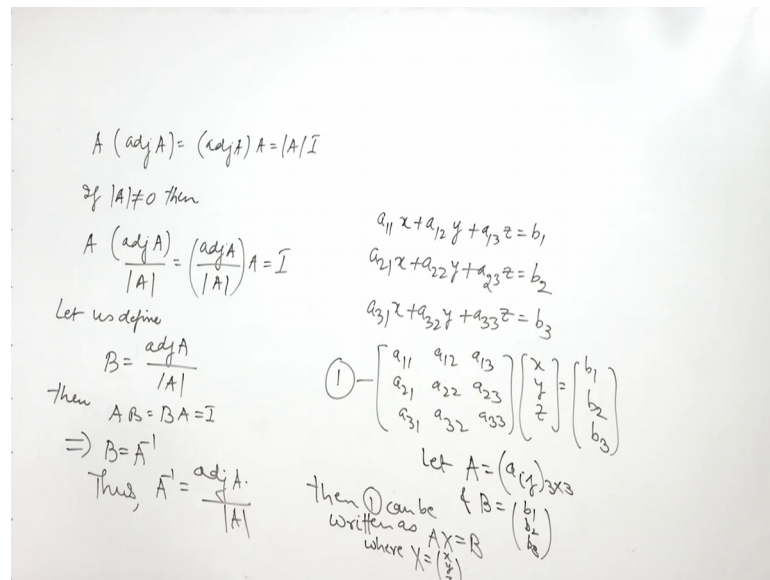 A (adj A) = (adj A) A = |A| I
If |A| ≠ 0 then
A (adj A)/|A| = (adj A/|A|) A = I
Let us define
B = adj A/|A|
then
AB = BA = I
⇒ B = A⁻¹
Thus, A⁻¹ = adj A./|A|
a₁₁x + a₁₂y + a₁₃z = b₁
a₂₁x + a₂₂y + a₂₃z = b₂
a₃₁x + a₃₂y + a₃₃z = b₃
① – [a₁₁ a₁₂ a₁₃] [x] = [b₁]
[a₂₁ a₂₂ a₂₃] [y] [b₂]
[a₃₁ a₃₂ a₃₃] [z] [b₃]
Let A = (aᵢⱼ)₃ₓ₃
& B = (b₁
b₂
b₃)
then ① can be
written as
AX = B
where X = (x
y
z)